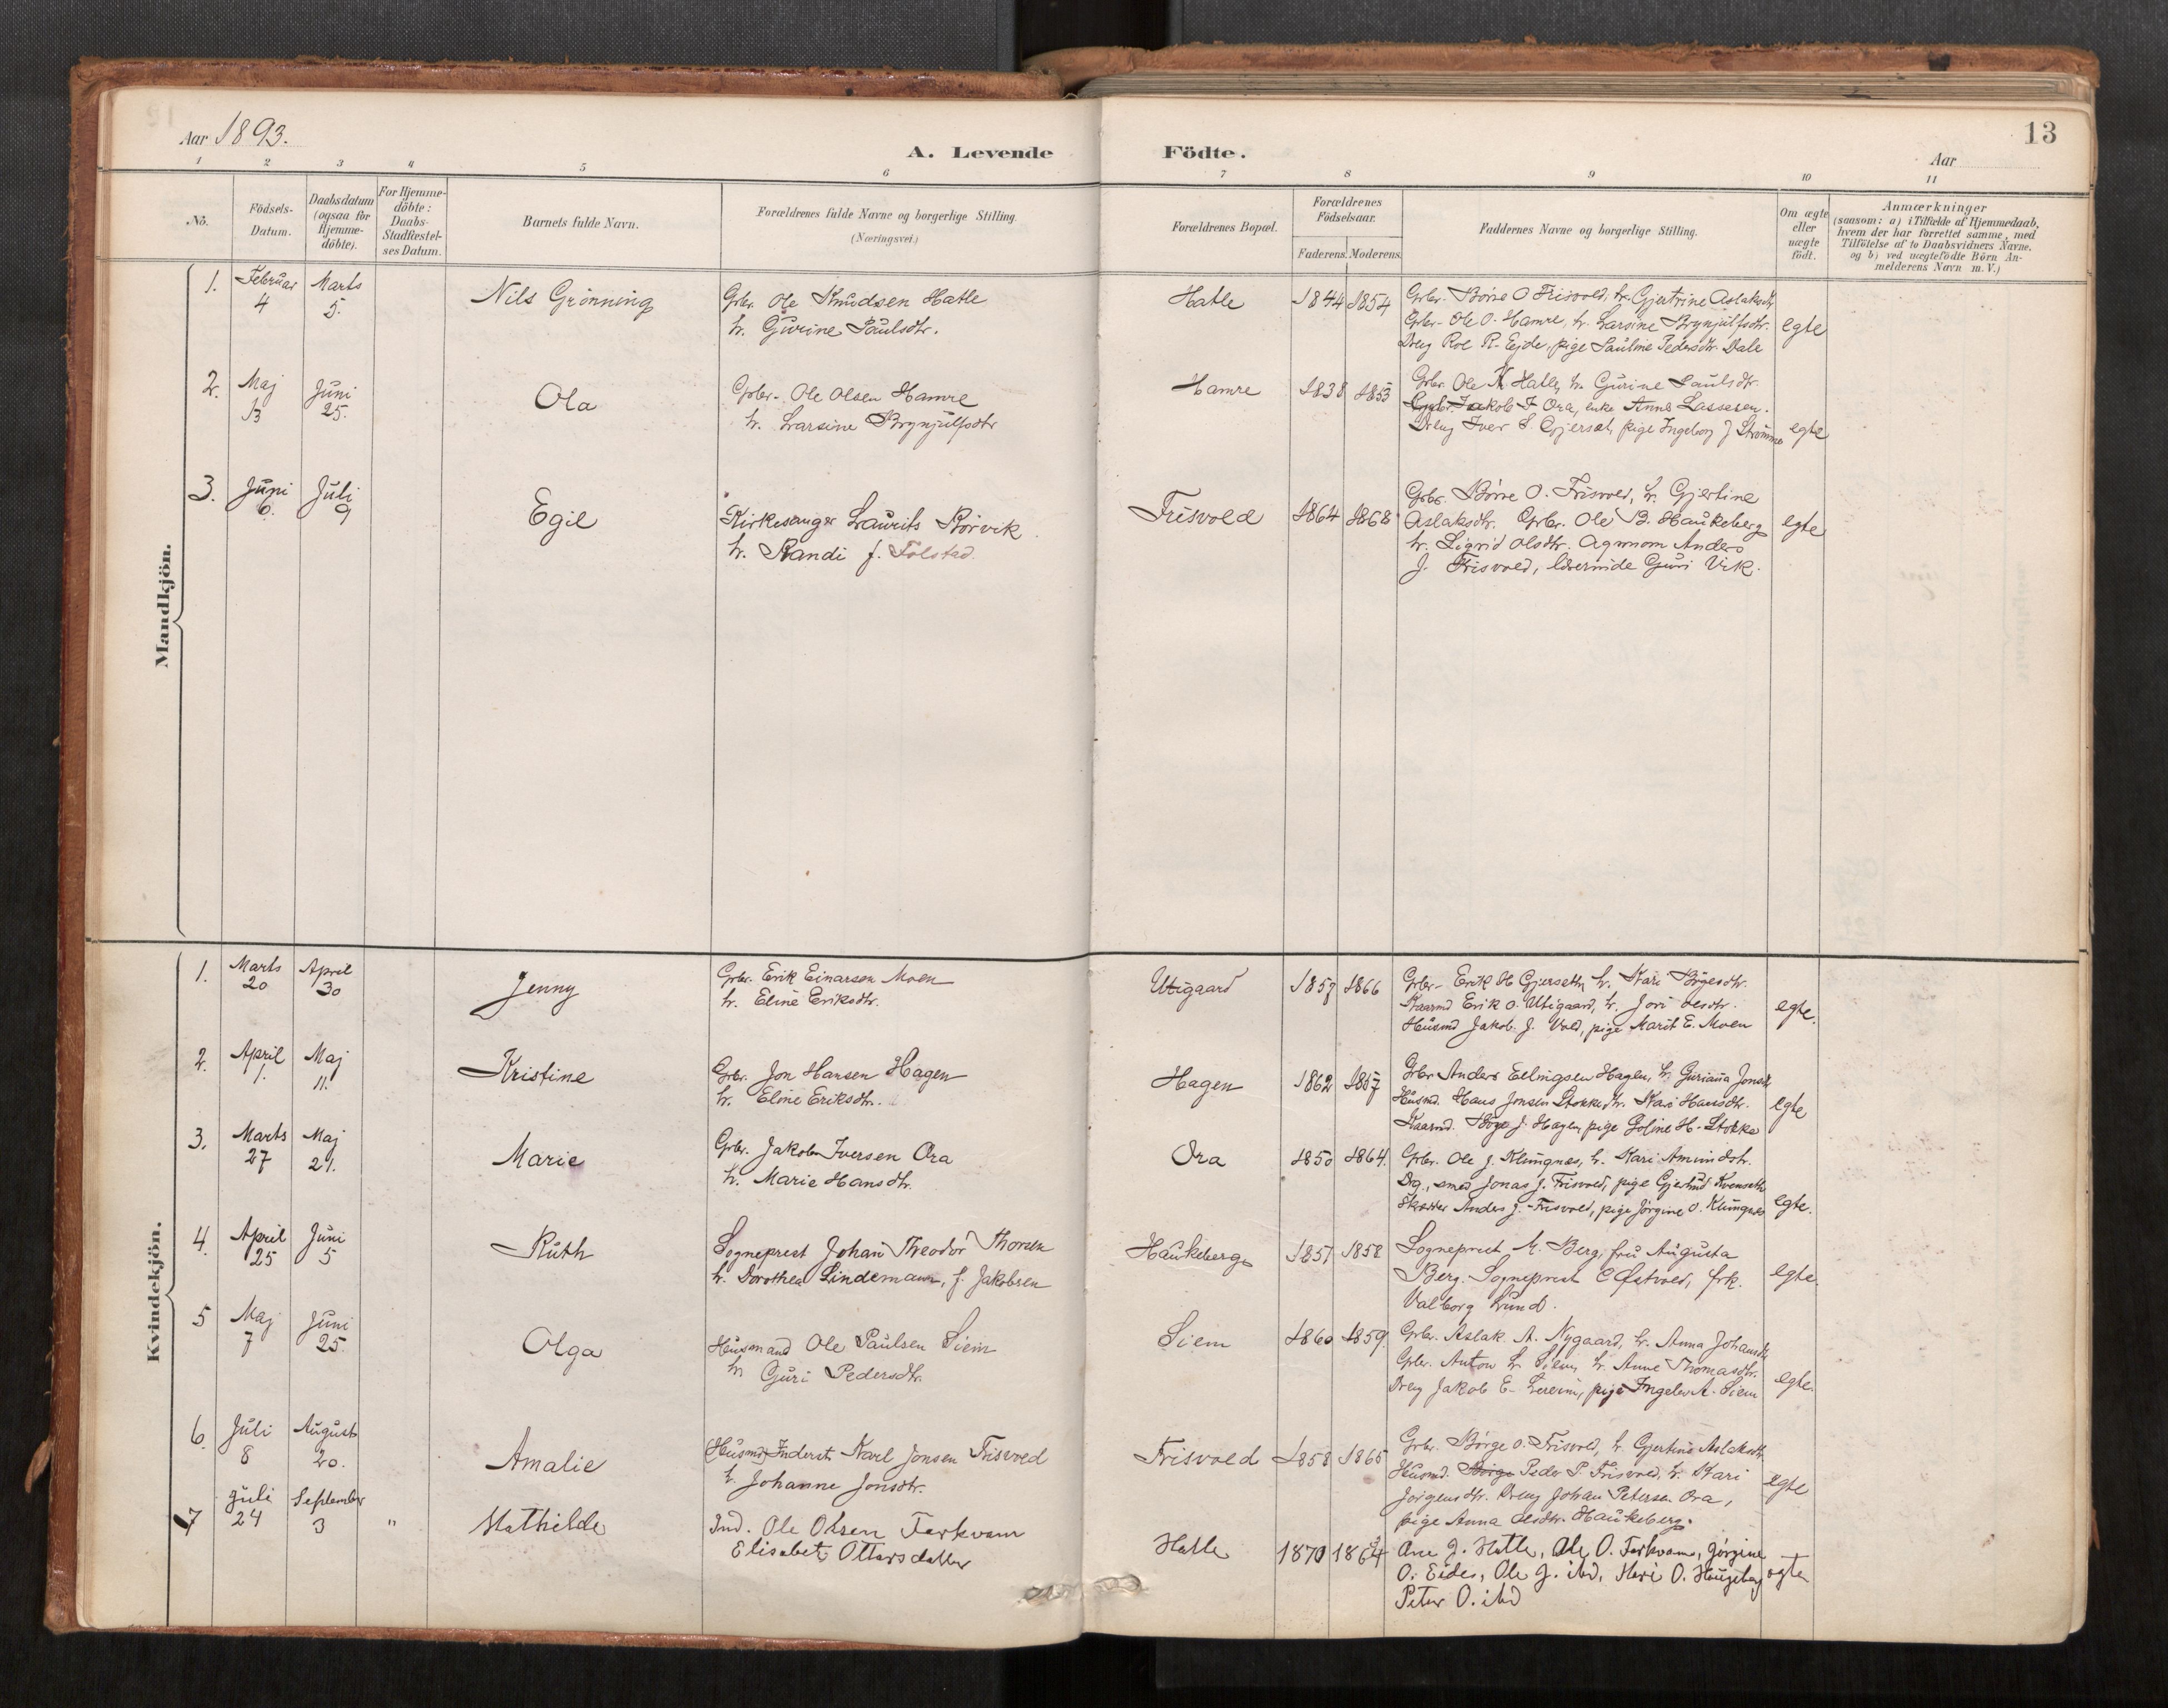 13
Aar 1893.
A. Levende Födte.
Aar
1 2 3 4 5 6 7 8 9 10 11
No.
Födsels-Datum.
Daabsdatum (ogsaa for Hjemme-döbte).
For Hjemme-döbte: Daabs-Stadfæstel-ses Datum.
Barnets fulde Navn.
Forældrenes fulde Navne og borgerlige Stilling.
(Næringsvei.)
Forældrenes Bopæl.
Forældrenes Födselsaar.
Faderens. Moderens.
Faddernes Navne og borgerlige Stilling.
Om ægte eller uægte födt.
Anmærkninger
(saasom: a) i Tilfælde af Hjemmedaab, hvem der har forrettet samme, med Tilföielse af to Daabsvidners Navne, og b) ved uægtefödte Börn Anmelderens Navn m. V.)
Mandkjön.
1. Februar 4 Marts 5. Nils Grönning
Gbr. Ole Knudsen Hatle
h. Gurine Paulsdtr.
Hatle 1844 1854
Gbr. Börre O Frisvold, h. Gjertrine Aslaksdtr
Gbr. Ole O. Hamre, h. Larsine Brynjulfsdtr.
Dreng Roe R. Eyde, pige Pauline Pedersdtr. Dale
egte
2. Maj 13 Juni 25. Ola
Gbr. Ole Olsen Hamre
h. Larsine Brynjulfsdtr
Hamre 1838 1853
Gbr. Ole K. Hatle, h. Gurine Paulsdtr.
Gbr. Jakob I Ora, enke Anne Lassesen.
Dreng Iver S. Gjerset, pige Ingeborg J Strømme
egte
3. Juni 6. Juli 9 Egil
Kirkesanger Laurits Rörvik
h. Randi f. Tolstad.
Frisvold 1864 1868
Gbr. Börre O. Frisvold, h. Gjertine
Aslaksdtr. Gbr. Ole B. Haukeberg
h. Sigrid Olsdtr. Agronom Anders
J. Frisvold, lærerinde Guri Vik.
egte
Kvindekjön.
1. Marts 20 April 30 Jenny
Gbr. Erik Einarsen Moen
h. Eline Eriksdtr.
Utigaard 1857 1866
Gbr. Erik H Gjerseth, h. Kari Börgesdtr.
Kaarmd Erik O. Utigaard, h. Jori Olsdtr.
Husmd Jakob J. Vold, pige Marit E. Moen
egte.
2. April 1. Maj 11. Kristine
Gbr. Jon Hansen Hagen
h. Eline Eriksdtr.
Hagen 1862 1857
Gbr Anders Ellingsen Hagen, h. Guriana Jonsdtr
Husmd. Hans Jonsen Stokke, h. Kari Hansdtr.
Kaarmd. Börge J. Hagen, pige Goline H. Stokke
egte
3. Marts 27 Maj 21. Marie
Gbr. Jakob Iversen Ora
h. Marie Hansdtr.
Ora 1850 1864.
Gbr. Ole J. Klungnes, h. Kari Amundsdtr.
Drg., smed Jonas J. Frisvold, pige Gjertrud Kvenseth
Skredder Anders J. Frisvold, pige Jörgine O. Klungnes
egte.
4. April 25 Juni 5 Ruth
Sogneprest Johan Theodor Thorsen
h. Dorothea Lindemann, f. Jakobsen
Haukeberg 1851 1858
Sogneprest M. Berg, fru Augusta
Berg. Sogneprest C Østvold, frk.
Valborg Lund.
egte.
5 Maj 7 Juni 25. Olga
Husmand Ole Paulsen Siem
h. Guri Pedersdtr.
Siem 1860 1859.
Gbr. Aslak A. Nygaard, h. Anna Johansdtr
Gbr. Anton L. Siem, h. Anne Thomasdtr.
Dreng Jakob E. pige A. Siem
egte.
6. Juli 8 August 20. Amalie
(Husmd) Inderst Karl Jonsen Frisvold
h. Johanne Jonsdtr.
Frisvold 1858 1865
Gbr. Börge O. Frisvold, h. Gjertine Aslaksdtr
Husmd. Börge Peder P. Frisvold, h. Kari
Jörgensdtr. Dreng Johan Petersen Ora,
pige Anna Olsdtr. Haukeberg.
egte
7 Juli 24 September 3 " Mathilde
Ind. Ole Olsen Farkvam
Elisabet Ottarsdatter
Hatle 1870 1864
Ane J. Hatle, Ole O. Farkvam, Jörgine
O. Eides, Ole J. ibd, Mari O. Haugeberg
Peter O. ibd
egte